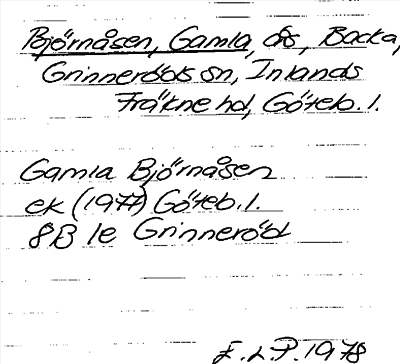 Björnåsen, Gamla, ås, Backa,
Grinneröds sn, Inlands
Fräkne hd, Göteb. l.
Gamla Björnåsen
ek (1977) Göteb. l.
8B 1e Grinneröd
E.L.P. 1978